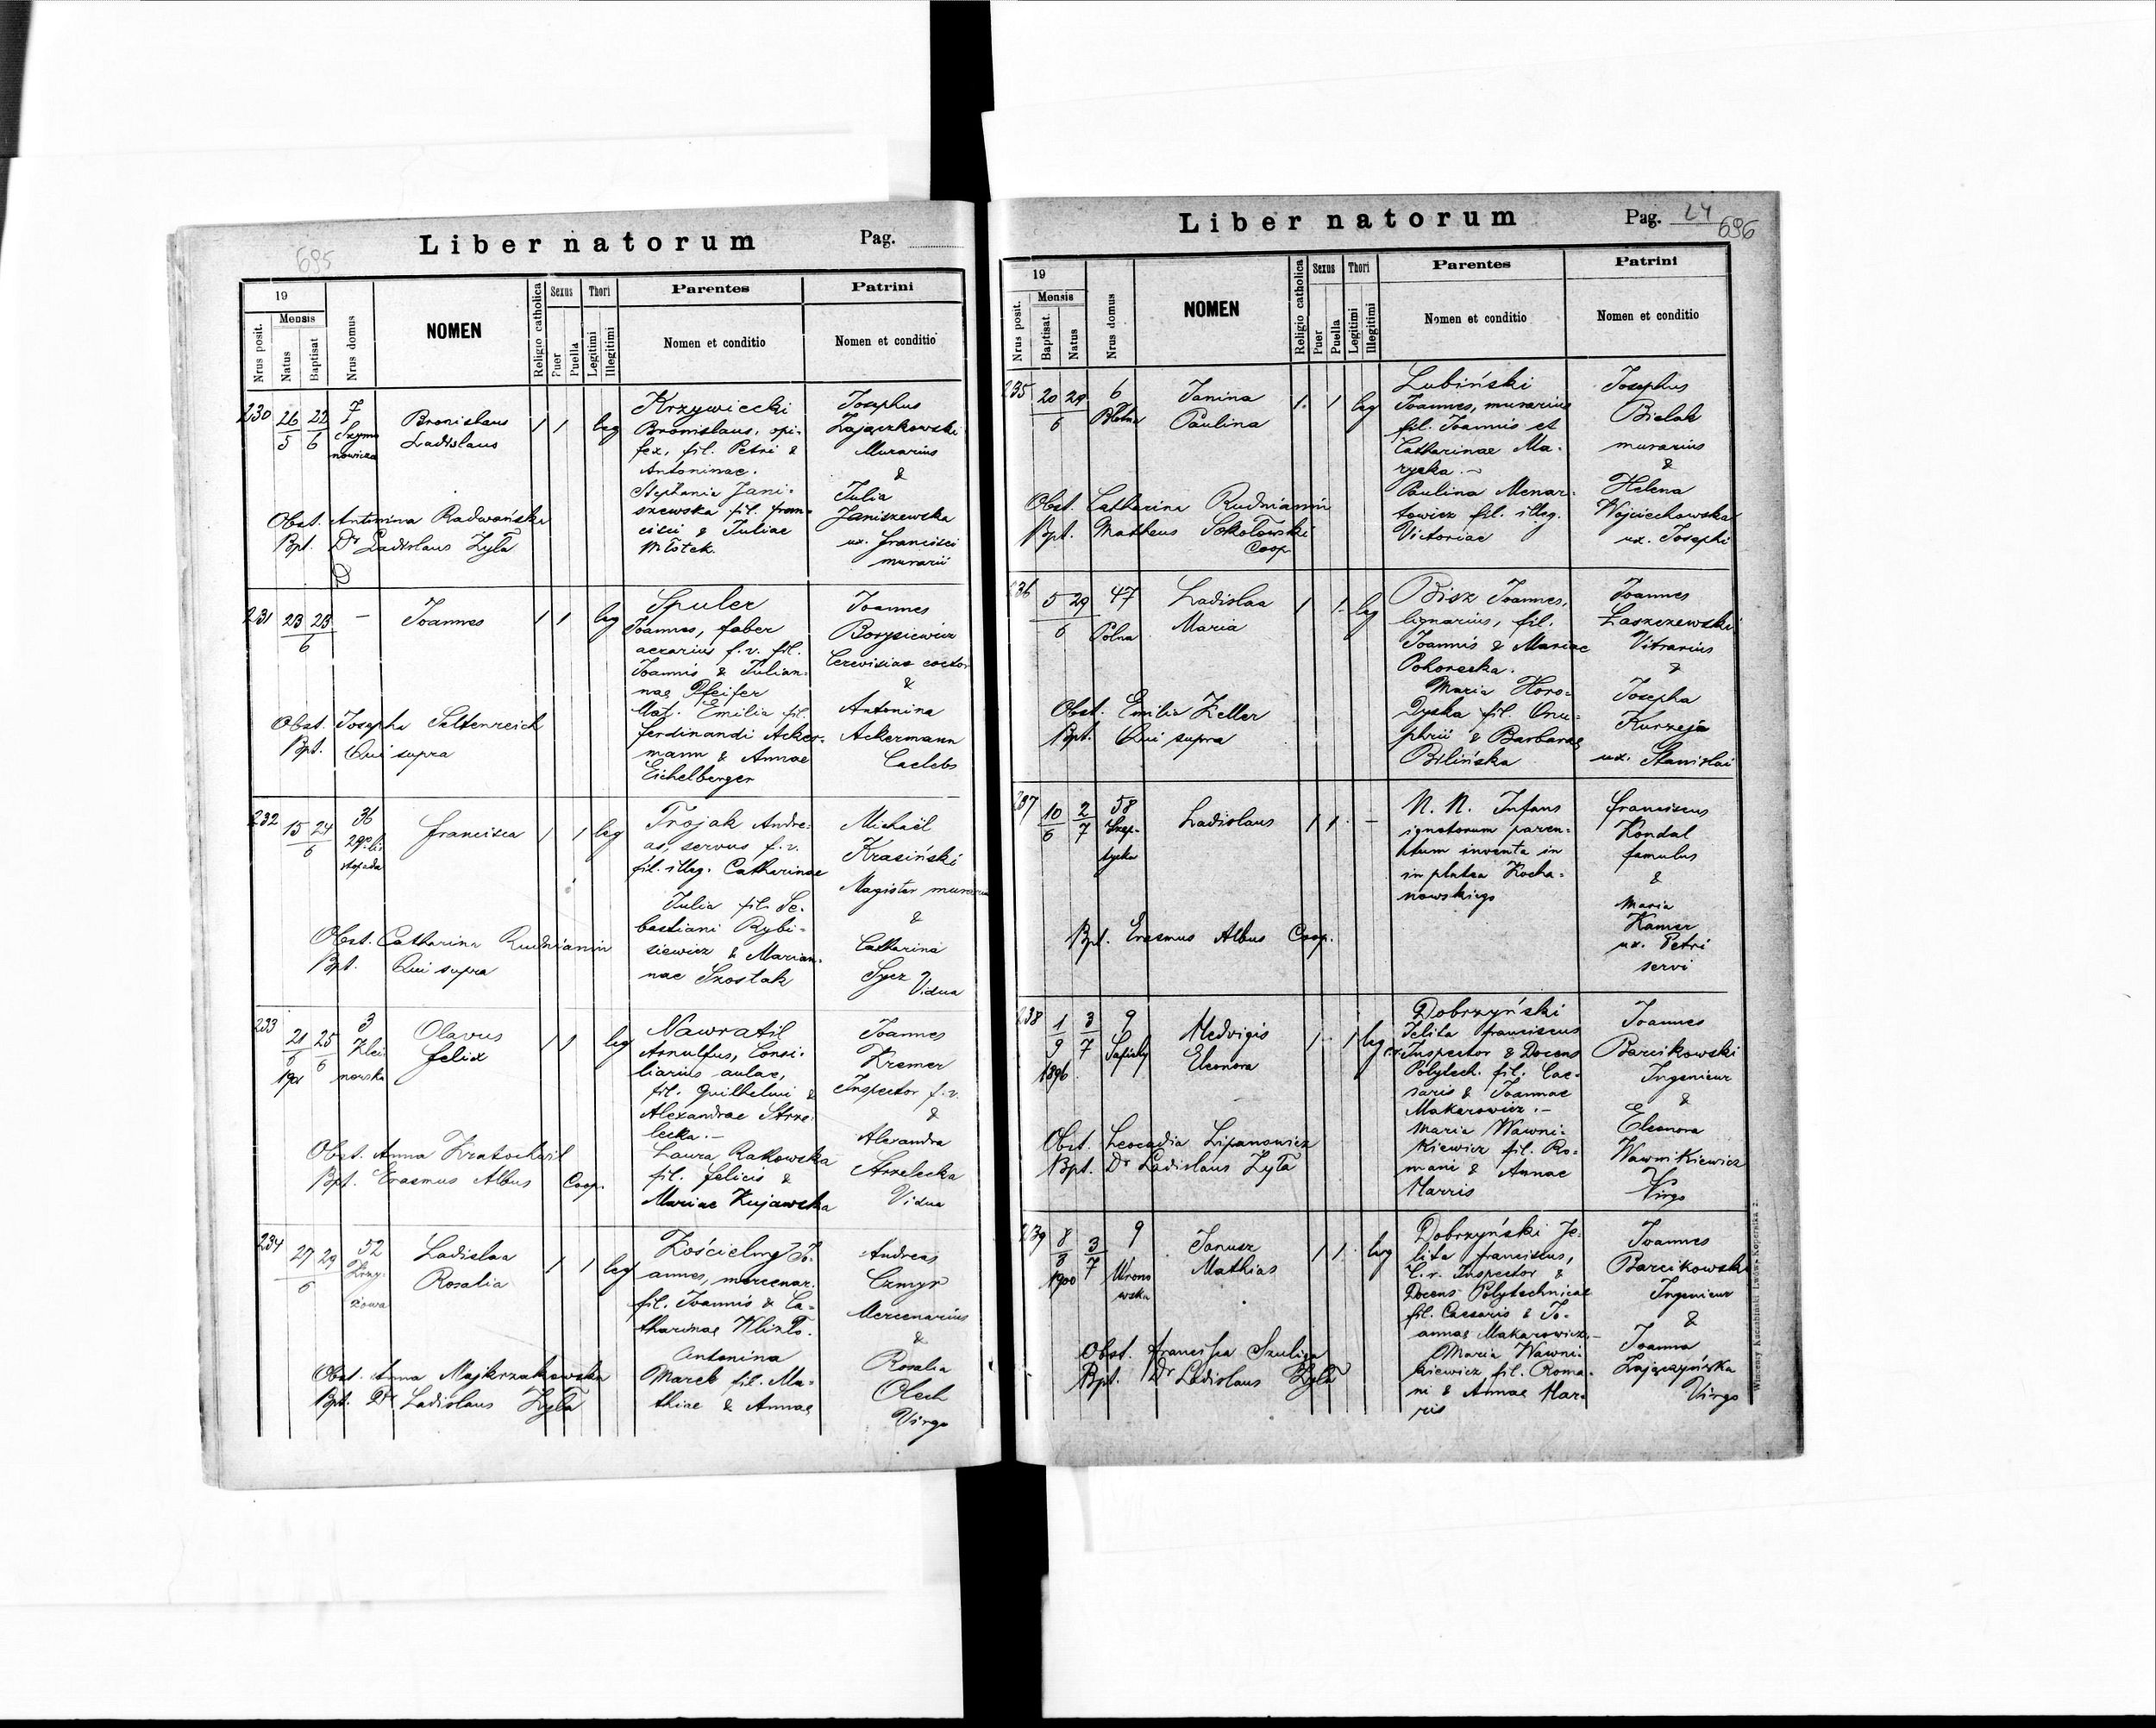 695
Liber natorum
Pag.
19
Mensis
Nrus posit.
Natus
Baptisat
Nrus domus
NOMEN
Religio catholica
Sexus
Puer
Puella
Thori
Legitimi
Illegitimi
Parentes
Nomen et conditio
Patrini
Nomen et conditio
230
26 22
5 6
7
Szymo
nowicza
Bronislaus
Ladislaus
1 1 leg
Krzywiecki
Bronislaus, opi-
fex, fil. Petri &
Antoninae.
Stephania Jani-
szewska fil. Fran-
cisci & Juliae
Młotek.
Josephus
Zajączkowski
Murarius
&
Julia
Janiszewska
ux. Francisci
murarii
Obst. Antonina Radwańska
Bpt. Dr Ladislaus Żyła
231
23 23
6
-
Joannes
1 1 leg
Spuler
Joannes, faber
aerarius f. v. fil.
Joannis & Julian-
nae Pfeifer
Mat. Emilia fil.
Ferdinandi Acker-
mann & Annae
Eichelberger
Joannes
Borysiewicz
Cerevisiae coctor
&
Antonina
Ackermann
Caelebs
Obst. Josepha Seltenreich
Bpt. Qui supra
232
15 24
6
36
29go li
stopada
Francisca
1 1 leg
Trojak Andre-
as, servus f. v.
fil. illeg. Catharinae
Julia fil. Se-
bastiani Rybi-
siewicz & Marian-
nae Szostak
Michaël
Krasiński
Magister murarius
&
Catharina
Sycz
Vidua
Obst. Catharina Rudnianin
Bpt. Qui supra
233
21 25
6 6
1901
3
Klei
nowska
Olavus
Felix
1 1 leg
Nawratil
Arnulfus, Consi-
liarius aulae,
fil. Guilhelmi &
Alexandrae Strze-
lecka.-
Laura Rakowska
fil. Felicis &
Mariae Kujawska
Joannes
Kremer
Inspector f. v.
&
Alexandra
Strzelecka
Vidua
Obst. Anna Kratochwil
Bpt. Erasmus Albus Coop.
234
27 29
6
52
Krzy-
żowa
Ladislaa
Rosalia
1 1 leg
Kościelny Jo-
annes, mercenar.
fil. Joannis & Ca-
tharinae
Antonina
Marek fil. Ma-
thiae & Annae
Andreas
Czmyr
Mercenarius
&
Rosalia
Olech
Virgo
Obst. Anna Majkrzakowska
Bpt. Dr Ladislaus Żyła
Liber natorum
Pag. 24
696
19
Mensis
Nrus posit.
Baptisat.
Natus
Nrus domus
NOMEN
Religio catholica
Sexus
Puer
Puella
Thori
Legitimi
Illegitimi
Parentes
Nomen et conditio
Patrini
Nomen et conditio
235
20 29
6
6
Błotna
Janina
Paulina
1. 1 leg
Lubiński
Joannes, murarius
fil. Joannis et
Catharinae Ma-
rycka.-
Paulina Menar-
towicz fil. illeg.
Victoriae
Josephus
Bielak
murarius
&
Helena
Wojciechowska
ux. Josephi
Obst. Catharina Rudnianin
Bpt. Matheus Sokołowski
Coop
236
5 29
6
47
Polna
Ladislaa
Maria
1 1. leg
Bisz Joannes,
lignarius, fil.
Joannis & Mariae
Pohorecka.
Maria Horo-
dyska fil. Onu-
phrii & Barbarae
Bilińska
Joannes
Łaszczewski
Vitrarius
&
Josepha
Kurzeja
ux. Stanislai
Obst. Emilia Zeller
Bpt. Qui supra
237
10 2
6 7
58
Szep-
tycka
Ladislaus
1 1 -
N. N. Infans
ignotorum paren-
tum inventa in
in platea Kocha-
nowskiego
Franciscus
Kondal
famulus
&
Maria
Kamer
ux. Petri
servi
Bpt. Erasmus Albus Coop.
238
1 3
9 7
1896
9
Sapiehy
Hedvigis
Eleonora
1 1 leg
Dobrzyński
Jelita Franciscus
c.r. Inspector & Docens
Polytech. fil. Cae-
saris & Joannae
Makarowicz.-
Maria Wawni-
kiewicz fil. Ro-
mani & Annae
Harris
Joannes
Barcikowski
Ingenieur
&
Eleonora
Wawnikiewicz
Virgo
Obst. Leocadia Lipanowicz
Bpt. Dr Ladislaus Żyła
239
8 3
3 7
1900
9
Wrono
wska
Janusz
Mathias
1 1. leg
Dobrzyński Je-
lita Franciscus,
C. r. Inspector &
Docens Polytechnicae
fil. Caesaris & Jo-
annae Makarowicz.-
Maria Wawni-
kiewicz fil. Roma-
ni & Annae Har-
ris
Joannes
Barcikowski
Ingenieur
&
Joanna
Zajączyńska
Virgo
Obst. Francisca Szuliga
Bpt. Dr Ladislaus Żyła
Lwów, Kopernika 2.